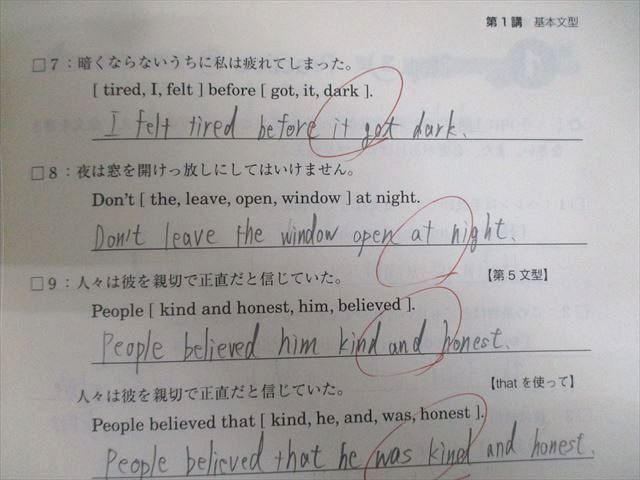 第1講 基本文型
□7：暗くならないうちに私は疲れてしまった。
[ tired, I, felt ] before [ got, it, dark ].
I felt tired before it got dark.
□8：夜は窓を開けっ放しにしてはいけません。
Don't [ the, leave, open, window ] at night.
Don't leave the window open at night.
□9：人々は彼を親切で正直だと信じていた。 【第5文型】
People [ kind and honest, him, believed ].
People believed him kind and honest.
人々は彼を親切で正直だと信じていた。 【that を使って】
People believed that [ kind, he, and, was, honest ].
People believed that he was kind and honest.